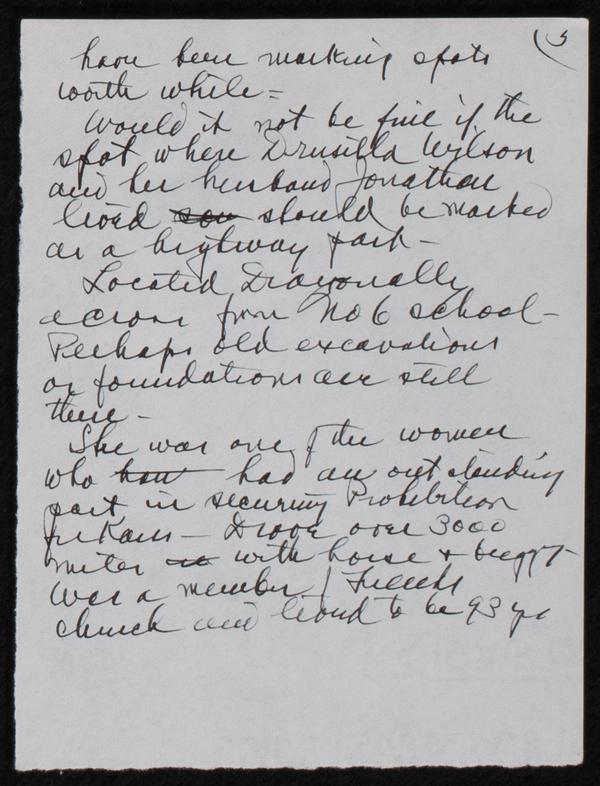 5
have been marking spots
worth while =
Would it not be fine if the
spot where Drusilla Wilson
and her husband Jonathan
lived should be marked
as a highway park -
Located Diagonally
across from No 6 school -
Perhaps old excavations
or foundations are still
there -
She was one of the women
who had an outstanding
part in securing Prohibition
for Kans - Drove over 3000
miles with horse + buggy -
Was a member of Friends
church and lived to be 93 yrs